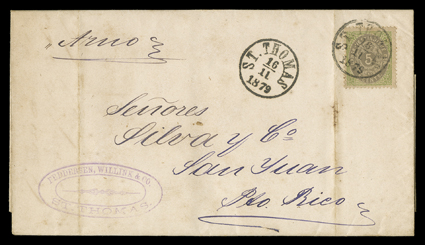 Arno
ST. THOMAS
16
11
1879
ST. THOMAS
1879
5
Señores
Silva y Co
San Juan
Pto Rico
WILLINK & CO.
ST. THOMAS